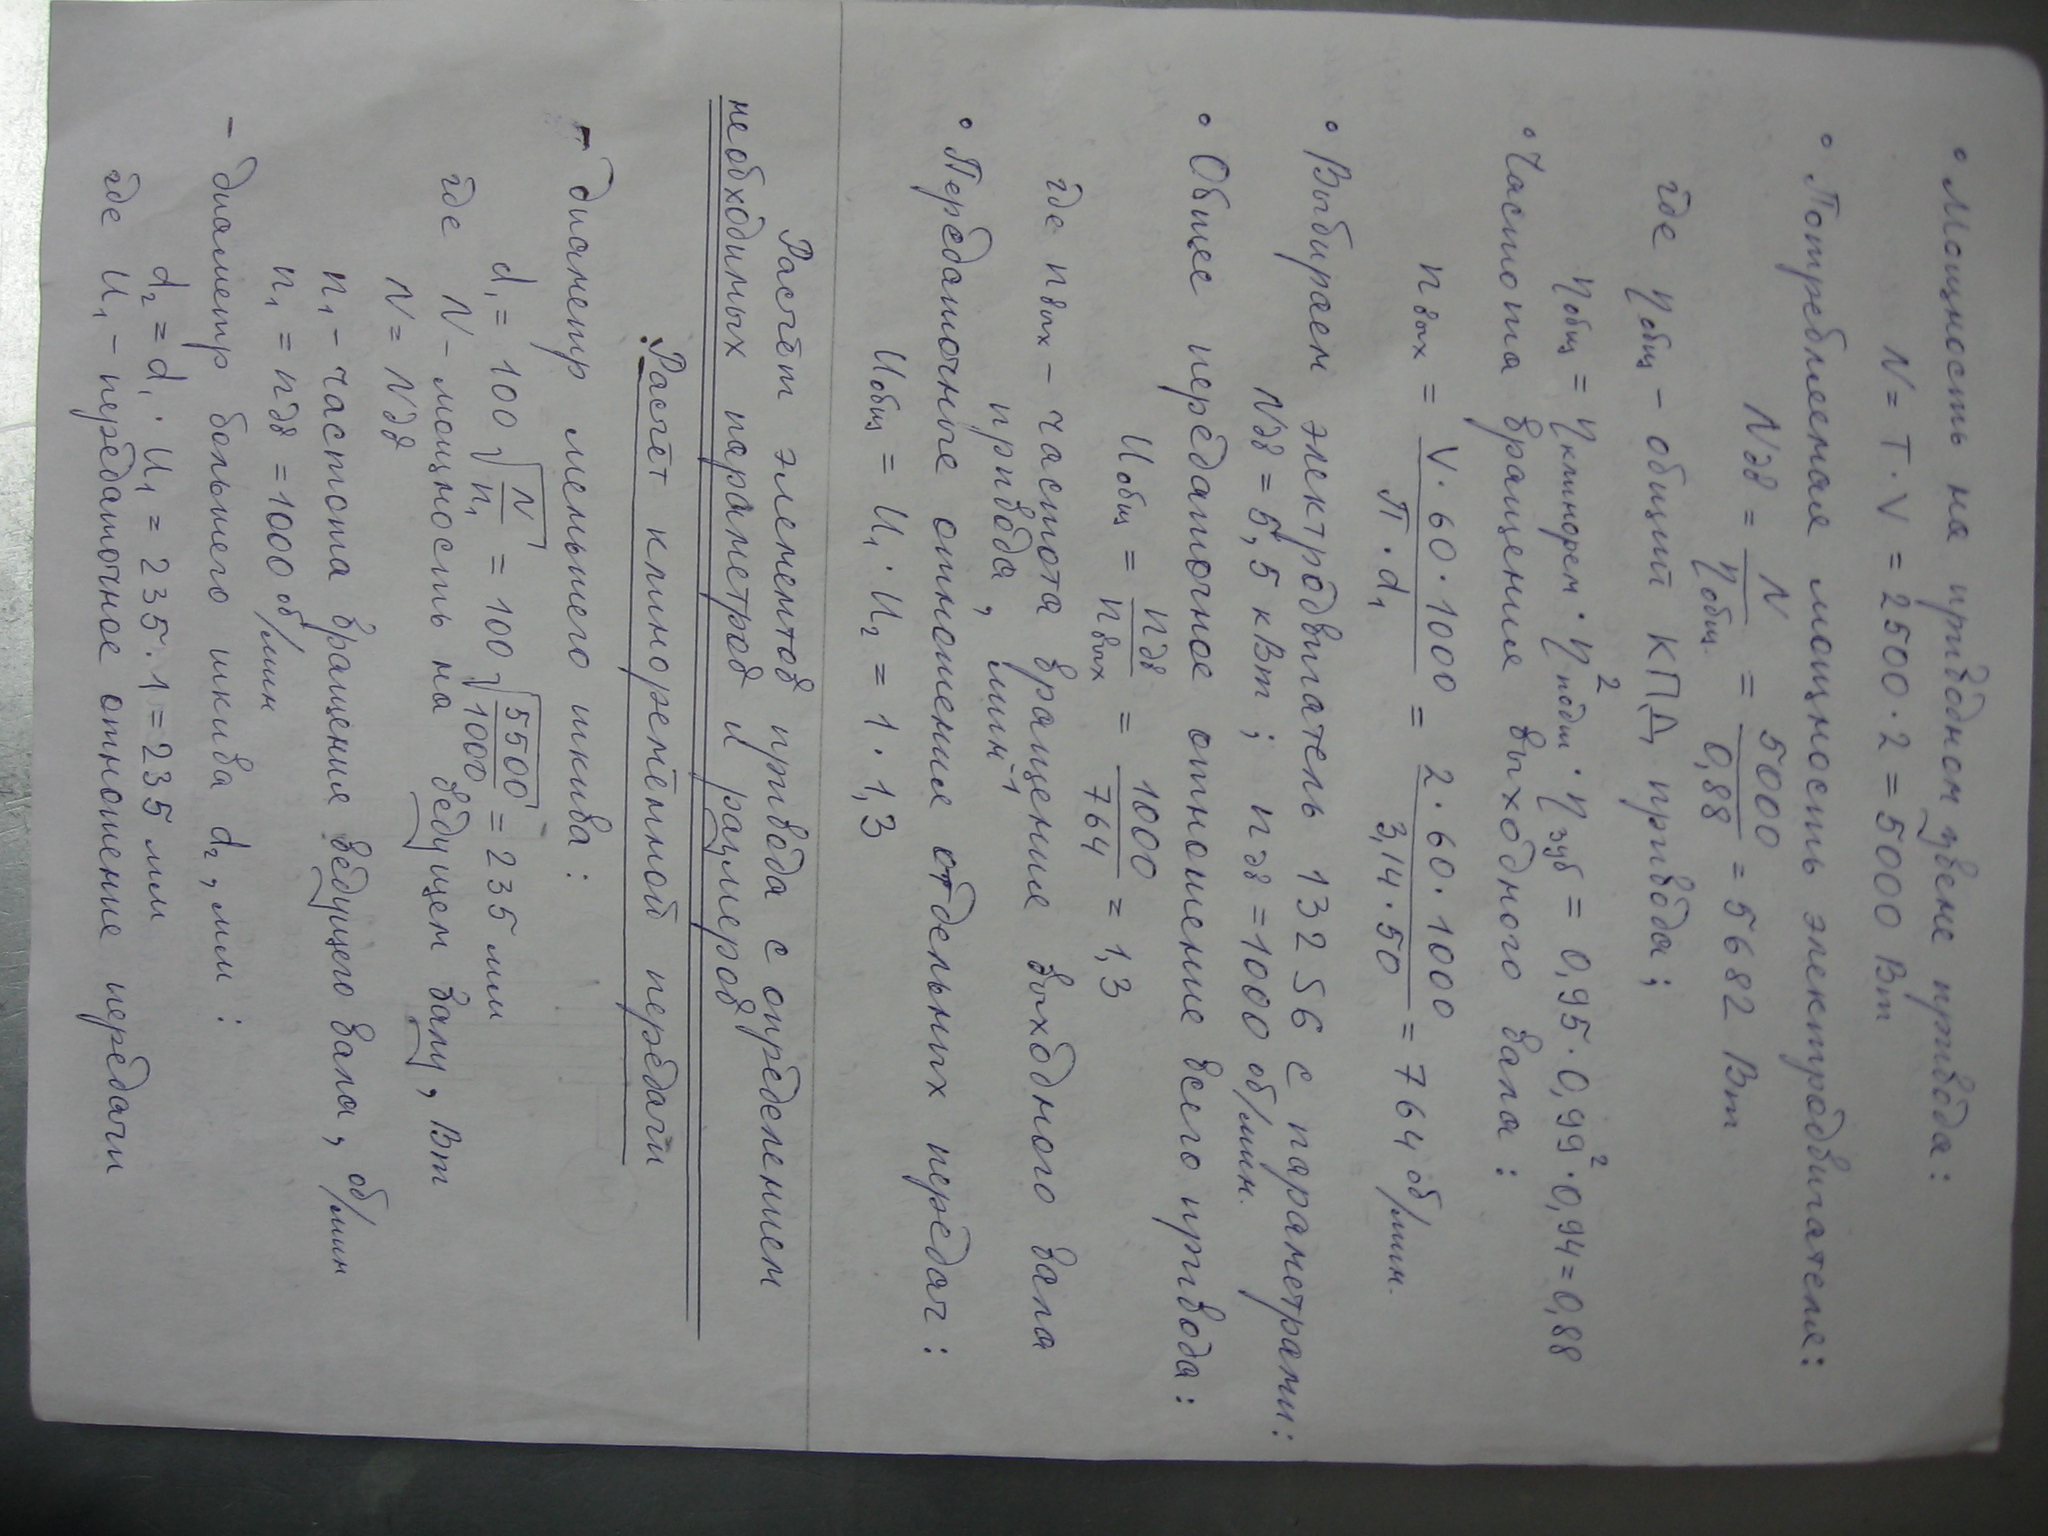 • Мощность на приводном звене привода:
N = T · V = 2500 · 2 = 5000 Вт
• Потребляемая мощность электродвигателя:
Nдв = N / ηобщ. = 5000 / 0,88 = 5682 Вт
где ηобщ – общий КПД привода;
ηобщ = ηклинорем · η²подш · ηзуб = 0,95 · 0,99² · 0,94 = 0,88
• Частота вращения выходного вала:
nвых = V · 60 · 1000 / π · d₁ = 2 · 60 · 1000 / 3,14 · 50 = 764 об/мин.
• Выбираем электродвигатель 132 S6 с параметрами:
Nдв = 5,5 кВт ; nдв = 1000 об/мин.
• Общее передаточное отношение всего привода:
Uобщ = nдв / nвых = 1000 / 764 = 1,3
где nвых – частота вращения выходного вала
привода, мин⁻¹
• Передаточные отношения отдельных передач:
Uобщ = U₁ · U₂ = 1 · 1,3
Расчёт элементов привода с определением
необходимых параметров и размеров
Расчёт клиноременной передачи
– диаметр меньшего шкива:
d₁ = 100 √(N / n₁) = 100 √(5500 / 1000) = 235 мм
где N – мощность на ведущем валу, Вт
N = Nдв
n₁ – частота вращения ведущего вала, об/мин
n₁ = nдв = 1000 об/мин
– диаметр большего шкива d₂, мм :
d₂ = d₁ · U₁ = 235 · 1 = 235 мм
где U₁ – передаточное отношение передачи